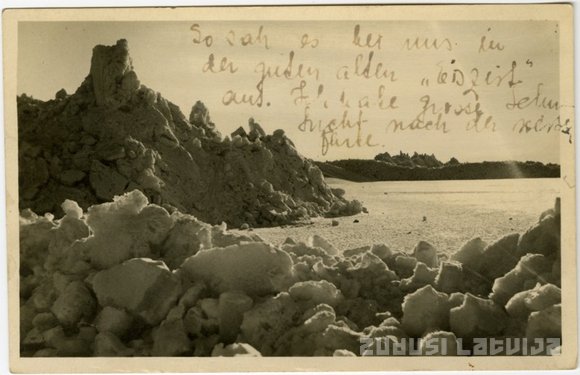 So sah es bei uns in
der guten alten „Eiszeit“
aus. Ich habe große Sehn-
sucht nach der
ZUDUSI LATVIJA